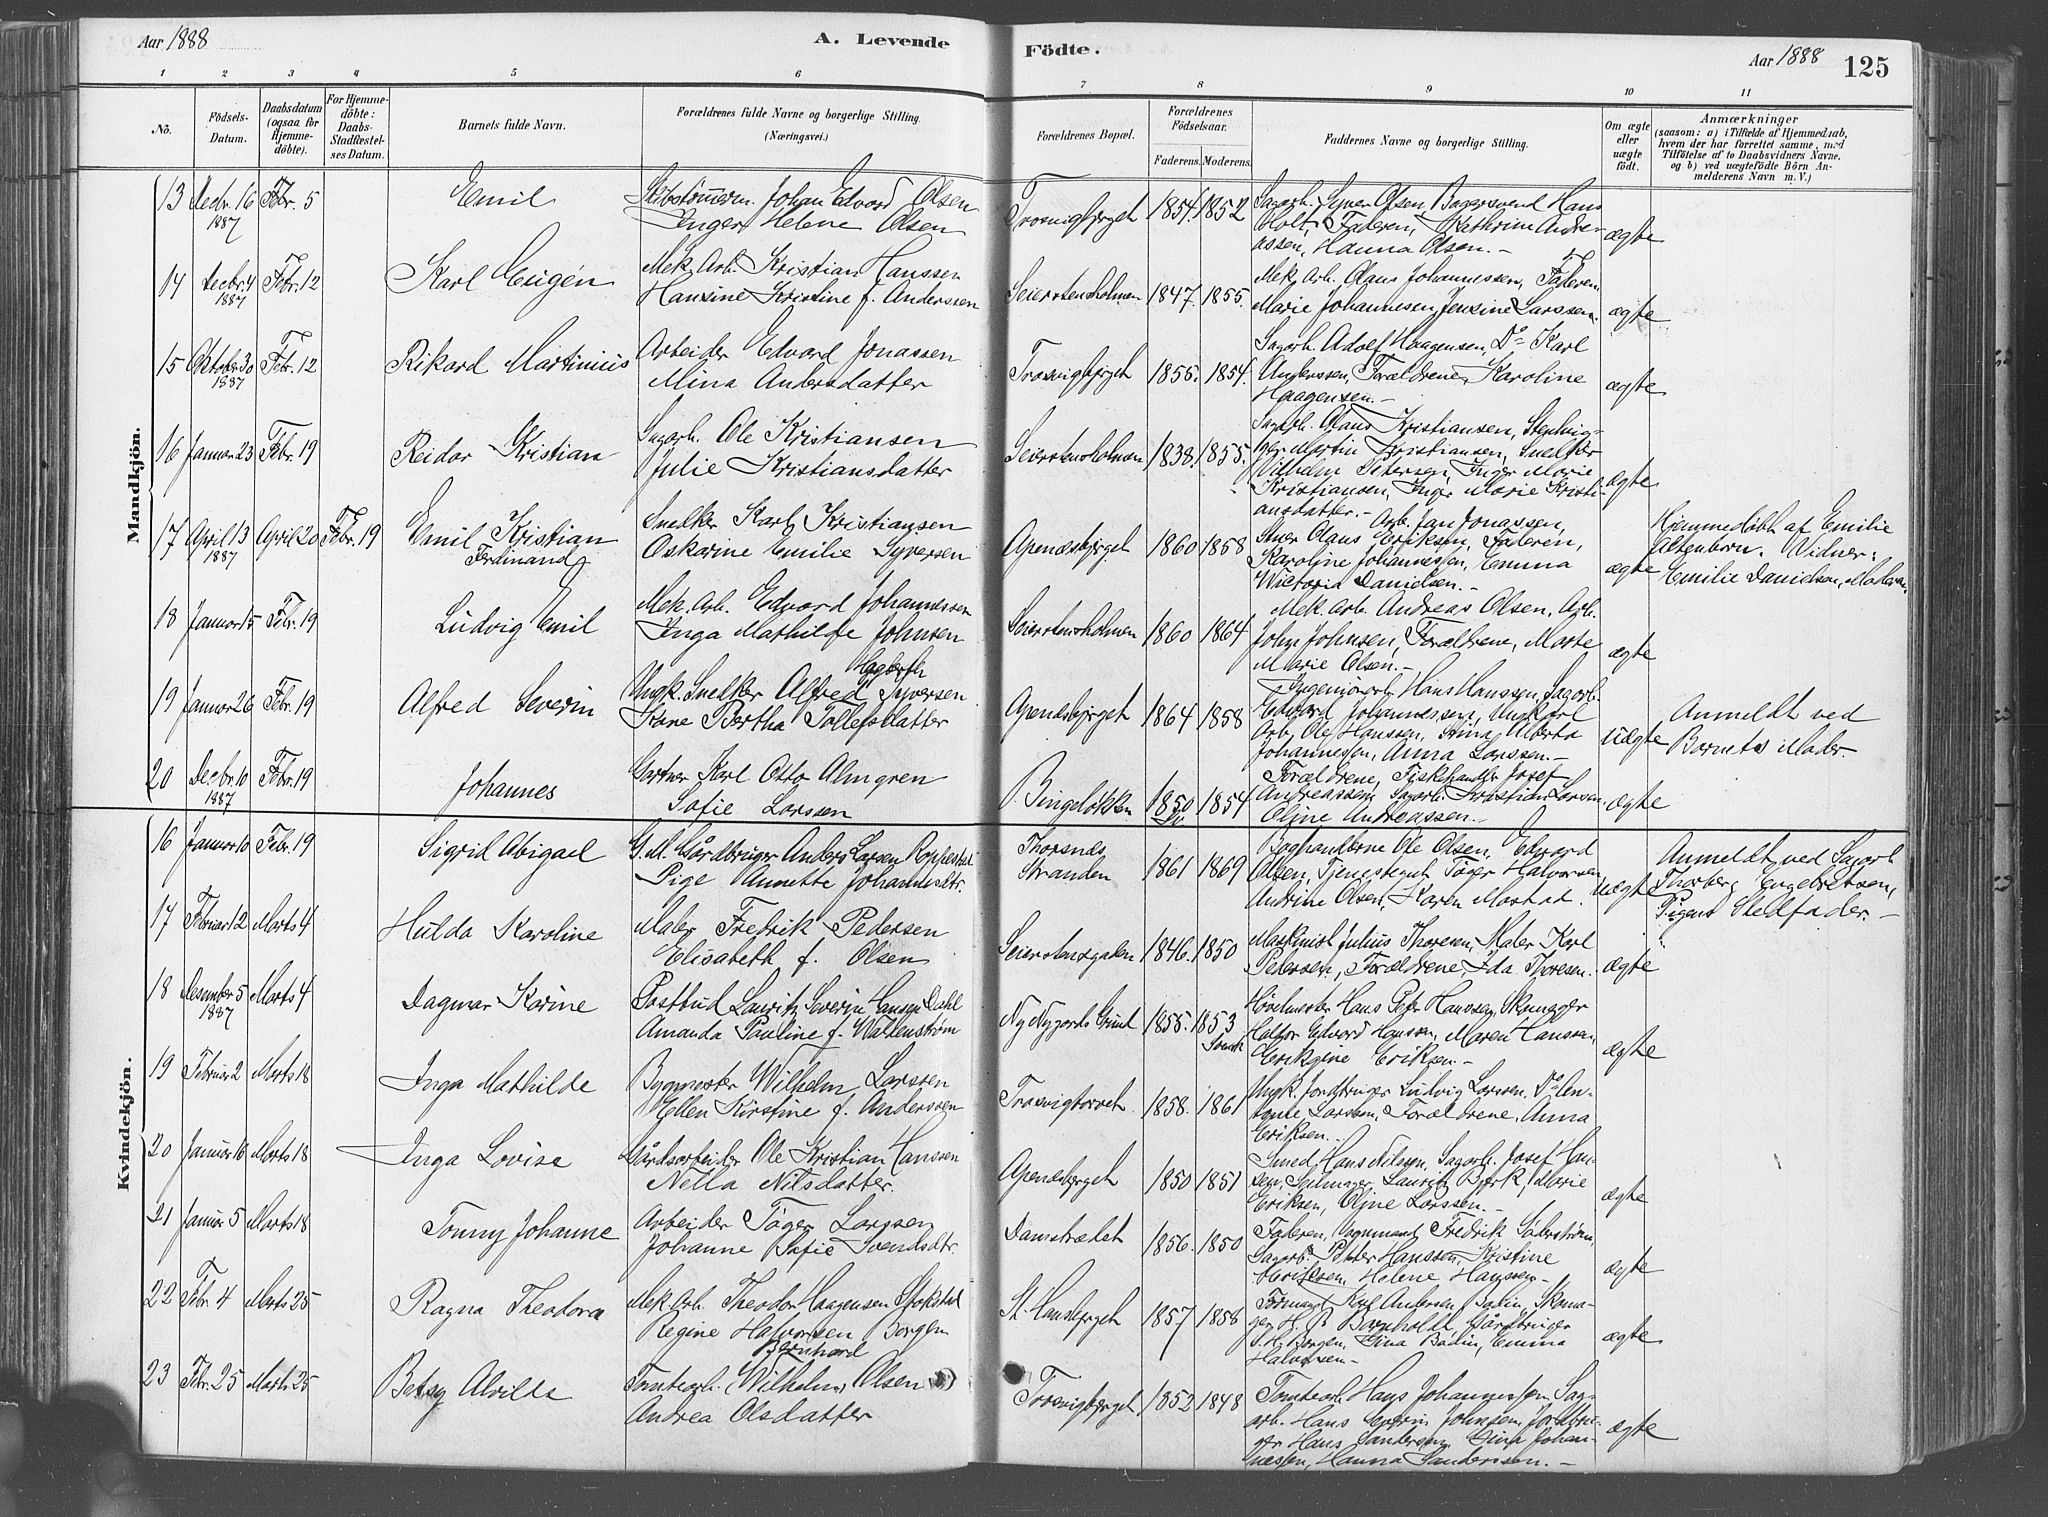 Aar 1888
A. Levende Födte.
Aar 1888 125
1 2 3 4 5 6 7 8 9 10 11
No.
Födsels-Datum.
Daabsdatum (ogsaa for Hjemmedöbte).
For Hjemmedöbte: Daabs-Stadfæstelses Datum.
Barnets fulde Navn.
Forældrenes fulde Navne og borgerlige Stilling. (Næringsvei.)
Forældrenes Bopæl.
Forældrenes Födselsaar.
Faderens. Moderens.
Faddernes Navne og borgerlige Stilling.
Om ægte eller uægte födt.
Anmærkninger
(saasom: a) i Tilfælde af Hjemmedaab,
hvem der har forrettet samme, med
Tilföielse af to Daabsvidners Navne,
og b) ved uægtefödte Börn Anmelderens Navn m. V.)
Mandkjön.
13 Decbr. 16 1887 Febr. 5 Emil
Johan Edvard Olsen
Inger Helene Olsen
Trosvigbjerget 1854 1852
Sagarb. Syver Olsen, Bagersvend Hans
Holt, Faderen, Kathrine Andreassen, Hanna Olsen.- ægte
14 Decbr. 4 1887 Febr. 12 Karl Eugén
Mek. Arb. Kristian Hanssen
Hansine Kristine f. Anderssen
Seierstensholmen 1847. 1855.
Mek. Arb. Olaus Johannessen, Faderen,
Marie Johannesen, Jensine Larssen. ægte
15 Oktober 30 1887 Febr. 12 Rikard Martinius
Arbeider Edvard Jonassen
Mina Andersdatter
Trosvigbjerget 1855. 1854.
Sagarb. Adolf Haagensen, Do Karl
Anderssen, Forældrene, Karoline
Haagensen.- ægte
16 Januar 23 Febr. 19 Reidar Kristian
Sagarb. Ole Kristiansen
Julie Kristiansdatter
Seierstensholmen 1838. 1855.
Sagarb. Olaus Kristiansen,
Martin Kristiansen, Snedker
Vilhelm Petersen, Inger Marie
Kristiansen, Inger Marie Kristiansdatter.- ægte
17 April 13 1887 April 20 Febr. 19 Emil Kristian
Ferdinand
Snedker Karl Kristiansen
Oskarine Emilie Syversen
Apenæsbjerget 1860 1858
Arb. Jan Jonassen,
Olaus Eriksen, Faderen,
Karoline Johannessen, Emma
Wictoria Danielsen.- ægte
Hjemmedöbt af Emilie
Altenborn. Vidner:
Emilie Danielsen, Moderen.
18 Januar 15 Febr. 19 Ludvig Emil
Mek. Arb. Edvard Johannessen
Inga Mathilde Johnsen
Seierstensholmen 1860 1864
Mek. Arb. Andreas Olsen, Arb.
John Johnsen, Forældrene, Marte
Marie Olsen.- ægte
19 Januar 26 Febr. 19 Alfred Severin
Ungk. Snedker Alfred Syversen
Bertha Tollefsdatter
Apenæsbjerget 1864 1858
Hans Hanssen, Sagarb.
Edvard Johannessen, Ungkarl
Arb. Ole Hanssen, Stina Alberta
Johannessen, Anna Larssen.- uægte
Anmeldt ved
Barnets Moder.
20 Decbr. 10 1887 Febr. 19 Johannes
Gartner Karl Otto Almgren
Sofie Larssen
Bingeløkken 1850 1854
Forældrene, Fiskehandler Josef
Andreassen, Sagarb. Kristian Larsen,
Oline Andreassen.- ægte
Kvindekjön.
16 Januar 10 Febr. 19 Sigrid Abigael
G. M. Gårdbruger Anders Larsen Roppestad
Pige Annette Johannesdtr.
Thorsnæs Stranden 1861 1869
Boghandlerne Ole Olsen, Edvard
Olsen, Tjenestegut Töger Halvorsen,
Andrine Olsen, Karen Mostad. uægte
Anmeldt ved Sagarb.
Thorberg Engebretsen,
Pigens Stedfader.-
17 Februar 12 Marts 4 Hulda Karoline
Maler Fredrik Pedersen
Elisabeth f. Olsen
Seierstensgaden 1846. 1850
Maskinist Julius Thoresen, Maler Karl
Petersen, Forældrene, Ida Thoresen. ægte
18 Desember 5 1887 Marts 4 Dagmar Karine
Postbud Lauritz Severin Hansen Dahl
Amanda Pauline f. Wallenström
Ny Nygards Grund 1855. 1853 Svensk
Høvelmester Hans Peter Hanssen, Skomager
Edvard Hanssen, Maren Hanssen,
Eriksine Eriksen.- ægte
19 Februar 2 Marts 18 Inga Mathilde
Bygmester Wilhelm Larssen
Ellen Kirstine f. Anderssen
Trosvigtorvet 1858. 1861
Ungk. Jordbruger Ludvig Larssen, Do Antonie Larssen, Forældrene, Anna
Eriksen.- ægte
20 Januar 16 Marts 18 Inga Lovise
Gårdsarbeider Ole Kristian Hanssen
Nella Nilsdatter.
Apenæsbjerget 1850 1851
Smed Hans Nilssen, Sagarb. Josef Hansen, Seilmager Lauritz Bjerk, Marie
Eriksen, Oline Larssen.- ægte
21 Januar 5 Marts 18 Tonny Johanne
Arbeider Töger Larssen
Johanne Sofie Svendsdtr.
Damstrædet 1856. 1850
Faderen, Vognmand Fredrik Söderström,
Sagarb. Petter Hanssen, Kristine
Eriksen, Helene Hanssen- ægte
22 Febr. 4 Marts 25 Ragna Theodora
Mek. Arb. Theodor Haagensen Stokstad
Regine Halvorsen Borgen
St. Hansbjerget 1857 1858
Formand Karl Andersen Bodin, Skomager H. P. Bornholdt, Gårdbruger
S. H. Borgen, Gina Bodin, Emma
Halvorsen- ægte
23 Febr. 25 Marts 25 Betsy Alvilde
Bernhard
Tomtearb. Wilhelm Olsen
Andrea Olsdatter
Trosvigbjerget 1852 1848
Tomtearb. Hans Johannessen, Sagarb. Hans Severin Johnsen, Jordbruger Hans Sandersen, Lina Johannessen, Hanna Sandersen.- ægte